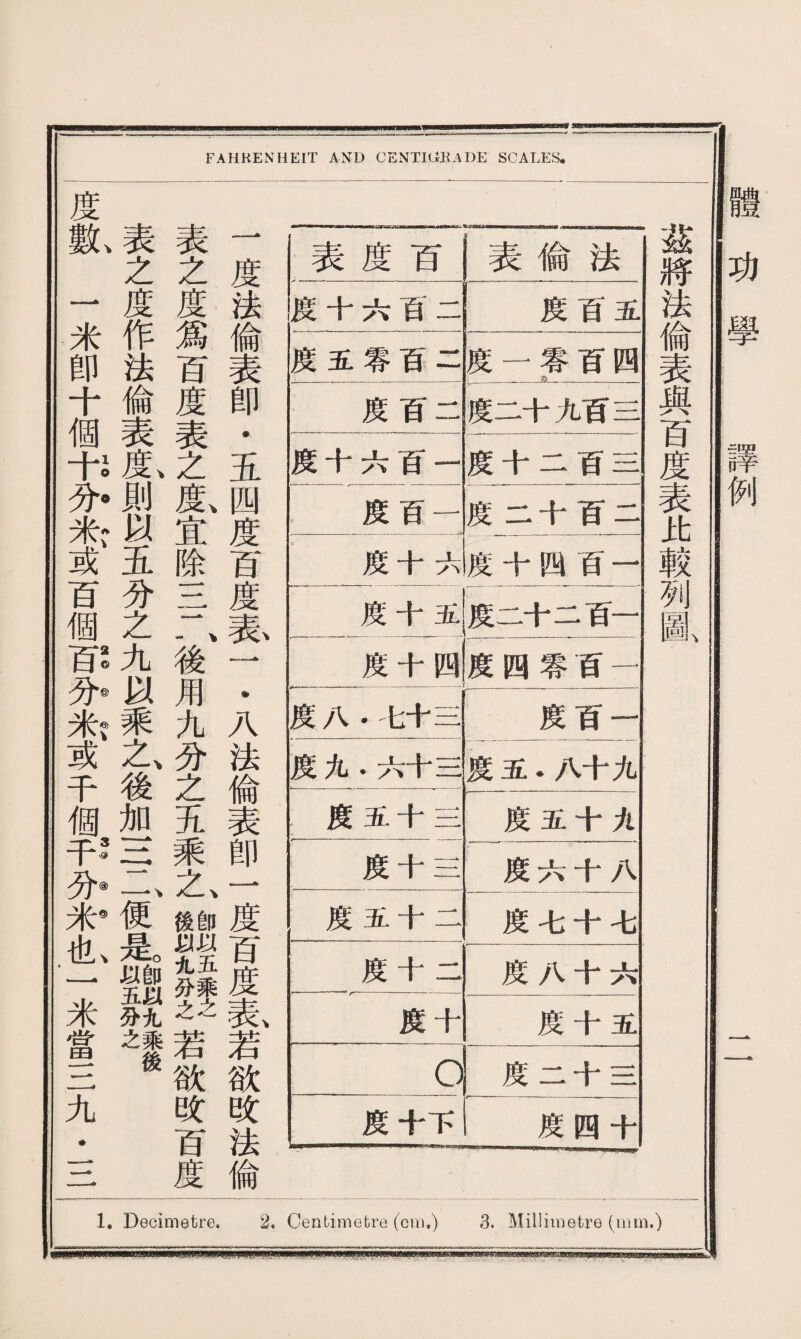 FAHRENHEIT AND CENTIGRADE SCALES.
體功學 譯例 二
茲將法倫表與百度表比較列圖、
法倫表 百度表
五百度 二百六十度
四百零一度 二百零五度
三百九十二度 二百度
三百二十度 一百六十度
二百十二度 一百度
一百四十度 六十度
一百二十二度 五十度
一百零四度 四十度
一百度 三十七・八度
九十八・五度 三十六・九度
九十五度 三十五度
八十六度 三十度
七十七度 二十五度
六十八度 二十度
五十度 十度
三十二度 〇
十四度 下十度
一度法倫表卽・五四度百度表、一・八法倫表卽一度百度表、若欲改法倫
表之度爲百度表之度、宜除三二、後用九分之五乘之、卽以五乘之後以九分之若欲改百度
表之度作法倫表度、則以五分之九以乘之、後加三二、便是。卽以九乘後以五分之
度數、一米卽十個十1分米、或百個百2分米、或千個千3分米也、一米當三九・三
1. Decimetre. 2. Centimetre (cm.) 3. Millimetre (mm.)